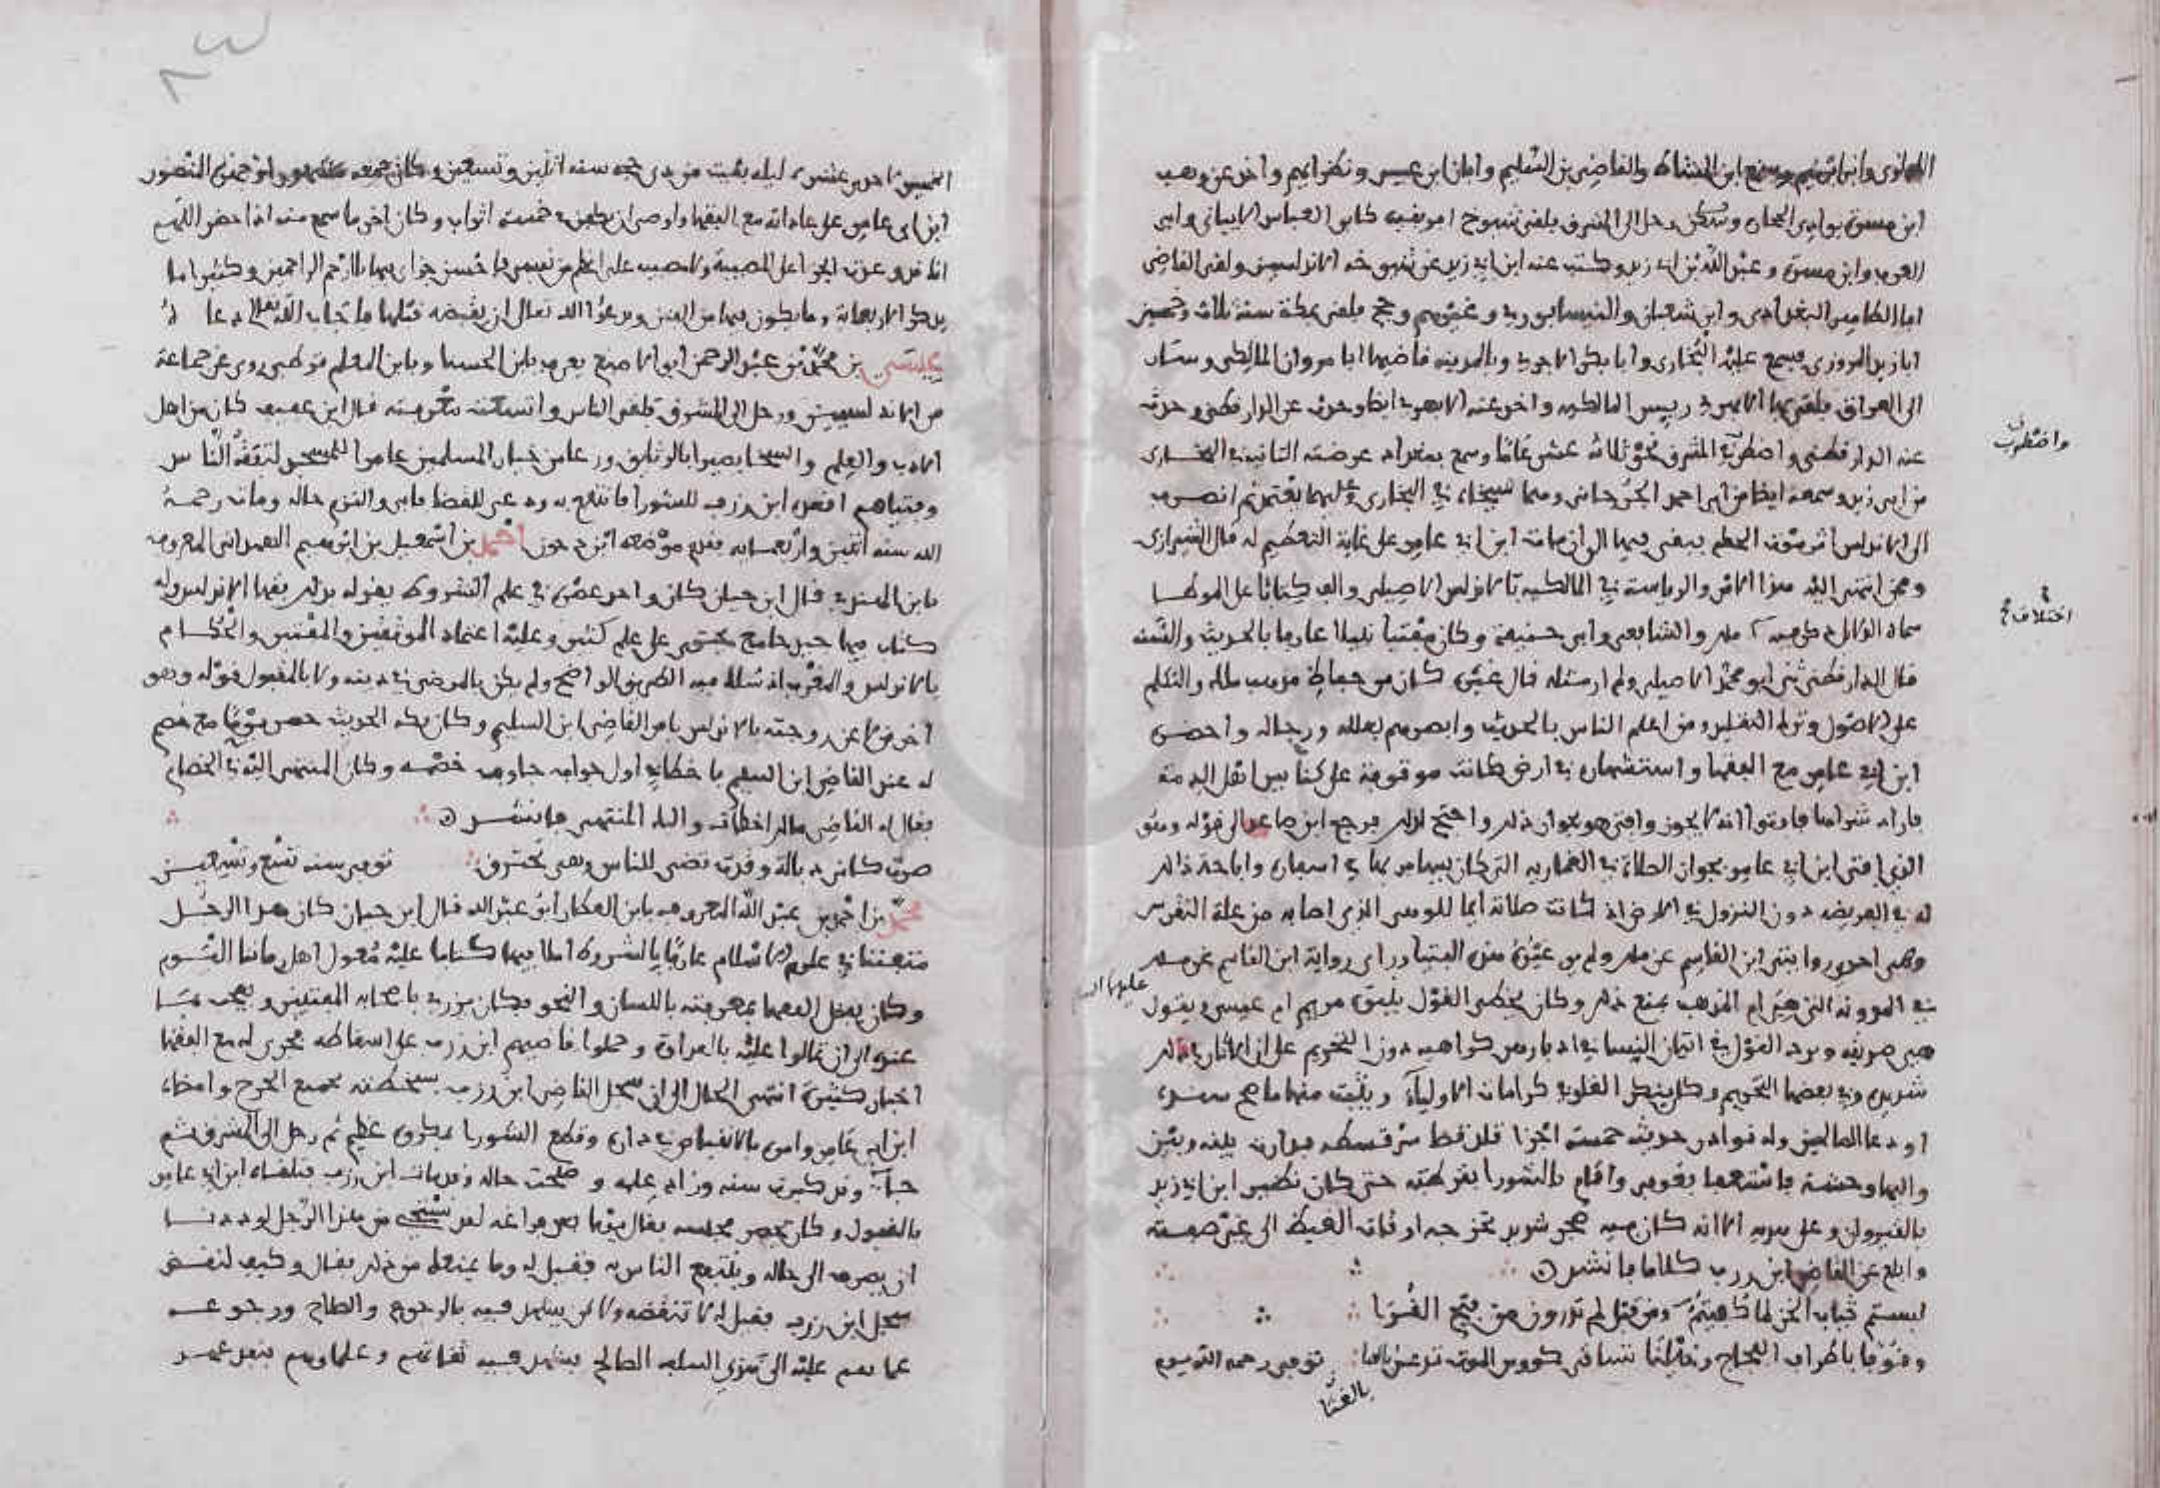 اللؤلؤي وأبا إبراهيم وسمع ابن المشاط والقاضي بن السليم وأبان ابن عيسى ونظراءهم وأخذ عن وهب
ابن مسرة بوادي الحجارة ورحل إلى المشرق فلقي شيوخ افريقية كأبي العباس الابياني وابي
العرب وابن مسرة وعبد الله بن أبي زيد وكتب عنه ابن أبي زيد عن شيوخه الاندلسيين ولقي القاضي
ابا الطاهر البغدادي وابن شعبان والنيسابوري وغيرهم وحج فلقي بمكة سنة ثلاث وخمسين
ابا زيد المروزي فسمع عليه البخاري وأبا بكر الاجري وبالمدينة قاضيها ابا مروان المالكي وسار
الى العراق فلقي بها الابهري رييس المالكية واخذ عنه الابهري ايضا وحدث عن الدارقطني وحدث
عنه الدارقطني واضطرب في المشرق نحو ثلاثة عشر عاما وسمع ببغداد عرضته الثانية في البخاري
من ابي زيد وسمعه ايضا من ابي احمد الجرجاني وهما شيخاه في البخاري وعليهما يعتمد ثم انصرف
الى الاندلس لشرف الحكم فبقي فيها الى أن مات ابن ابي عامر على غاية التعظيم له قال الشيرازي
وممن انتهى اليه هذا الامر والرياسة في المالكية بالاندلس الاصيلي والف كتابا على الموطا
سماه الدلائل ذكر فيه ملك والشافعي وابي حنيفة وكان مفتيا نبيلا عارفا بالحديث والسنة
قال الدارقطني ثني ابو محمد الاصيلي ولم ار مثله قال غيره كان من حفاظ مذهب ملك والتكلم
على الاصول وترك التقليد ومن اعلم الناس بالحديث وابصرهم بعلله ورجاله واحضره
ابن ابي عامر مع الفقها واستشهاره في ارض كانت موقوفة على كنائس اهل الذمة
فاراد شراها فافتوا انه لا يجوز وافتى هو بجواز ذلك واحتج لذلك فرجع ابن الى قوله وهو
الذي افتى ابن ابي عامر بجواز الصلاة في العمارية التي كان يسافر بها في اسفاره واباحة ذلك
له في الفريضة دون النزول في الارض اذ كانت صلاته ايما للوهن الذي اصابه من علة النقرس
وهي احدى روايتي ابن القاسم عن ملك ولم ير غيره هذه الفتيا وراى رواية ابن القاسم عن ملك
في المدونة التي هي ام المذهب بمنع ذلك وكان يخطي القول بنبوة مريم ام عيسى ويقول
هي صديقة ويرد القول في اتيان النساء في ادبارهن كراهية دون التحريم على ان الاثار في ذلك
شديدة وفي بعضها التحريم وكان ينكر الغلو في كرامات الاولياء ويثبت منها ما صح سنده
او دعا الصالحين وله نوادر حديث خمسة اجزا قلد قضا سرقسطة
بالقيروان وعلى هديه الا انه كان فيه ضجر شديد يخرجه اوقات الغيظ الى غير صفته
وابلغ عن القاضي ابن زرب كلاما فانشد
لبستم ثياب الخز لما كفيتم ومن قبل لم تدرون من فتح القرا
وقوفا باطراف الفجاج وخيلنا تساقي كووس الموت توفي رحمه الله يوم
بالقنا
واضطرب
اختلاف
عليهما السلام
الخميس لاحدى عشرة ليلة بقيت من ذي حجة سنة اثنين وتسعين وكان جمعه
ابن ابي عامر على عاداته مع الفقها واوصى ان يكفن في خمسة اثواب وكان اخر ما سمع منه اذا حضر اللهم
انك قد وعدت الجزا على المصيبة ولا مصيبة علي اعظم من نفسي فاحسن جزاي فيها يا ارحم الراحمين وكثيرا ما
يذكر الاربعماية وما يكون فيها من الفتن ويدعو الله تعالى ان يقبضه قبلها فاجاب الله تعالى دعاه
عيسى بن محمد بن عبد الرحمن ابو الاصبغ يعرف بابن الحشا وبابن المعلم قرطبي روى عن جماعة
من الاندلسيين ورحل الى المشرق فلقي الناس واتسعت معرفته قال ابن عفيف كان من اهل
الادب والعلم والسخا بصيرا بالوثايق ورعا من خيار المسلمين عامرا للمسجد لتفقه الناس
وفتياهم اقعده ابن زرب للشورا فانتفع به ودعي للقضا فابى والتزم حاله ومات رحمه
الله سنة اثنين واربعماية احمد بن اسمعيل بن ابراهيم الهمداني المعروف
بابن الهندي قال ابن حيان كان واحد عصره في علم الشروط يقر له بذلك فقها الاندلس وله
كتاب فيها حسن جامع يحتوي على علم كثير وعليه اعتماد الموثقين والمفتين والحكام
بالاندلس والمغرب اذ سلك فيه الطريق الواضح ولم يكن بالمرضي في دينه ولا بالمقبول قوله وهو
اخر من لاعن زوجته بالاندلس بامر القاضي ابن السليم وكان يكره الحديث حضر يوما مع خصم
له عند القاضي ابن السليم فاخطا في اول جوابه جاوب خصمه وكان المنتهى اليه في الخصام
فقال له القاضي مالك اخطات واليك المنتهى فانشد
صرت كاني ذبالة وقدت تضي للناس وهي تحترق توفي سنة تسع وتسعين
محمد بن احمد بن عبد الله المعروف بابن العطار ابو عبد الله قال ابن حيان كان هذا الرجل
متفننا في علوم الاسلام عارفا بالشروط املا فيها كتابا عليه معول اهل زماننا اليوم
وكان يفضل الفقها بمعرفته باللسان والنحو فكان يزري باصحابه المفتين ويعجب بما
عنده الى ان تمالوا عليه بالعداوة وحملوا قاضيهم ابن زرب على اسقاطه بجرى له مع الفقها
اخبار كثيرة انتهى الحال الى ان سجل القاضي ابن زرب بسخطته بجميع الجرح وامضاه
ابن ابي عامر وامره بالانقباض في داره وقطع الشورا بمكروه عظيم ثم رحل الى المشرق ثم
جا وقد كبرت سنه وزاد علمه وصلحت حاله وقد مات ابن زرب فتلقاه ابن ابي عامر
بالقبول وكان يحضر مجلسه فقال يوما بعد فراغه لقد من هذا الرجل لوددنا
ان يصرف الى حاله وينتفع الناس به فقيل له وما يمنعك من ذلك فقال وكيف لنقض
سجل ابن زرب فقيل له لا تنقضه ولكن يشهد فيه بالرجوع والصلاح ورجوعه
عما نقم عليه الى هدي السلف الصالح يشهد فيه ثقاتهم وعلماوهم فنفذ عهد